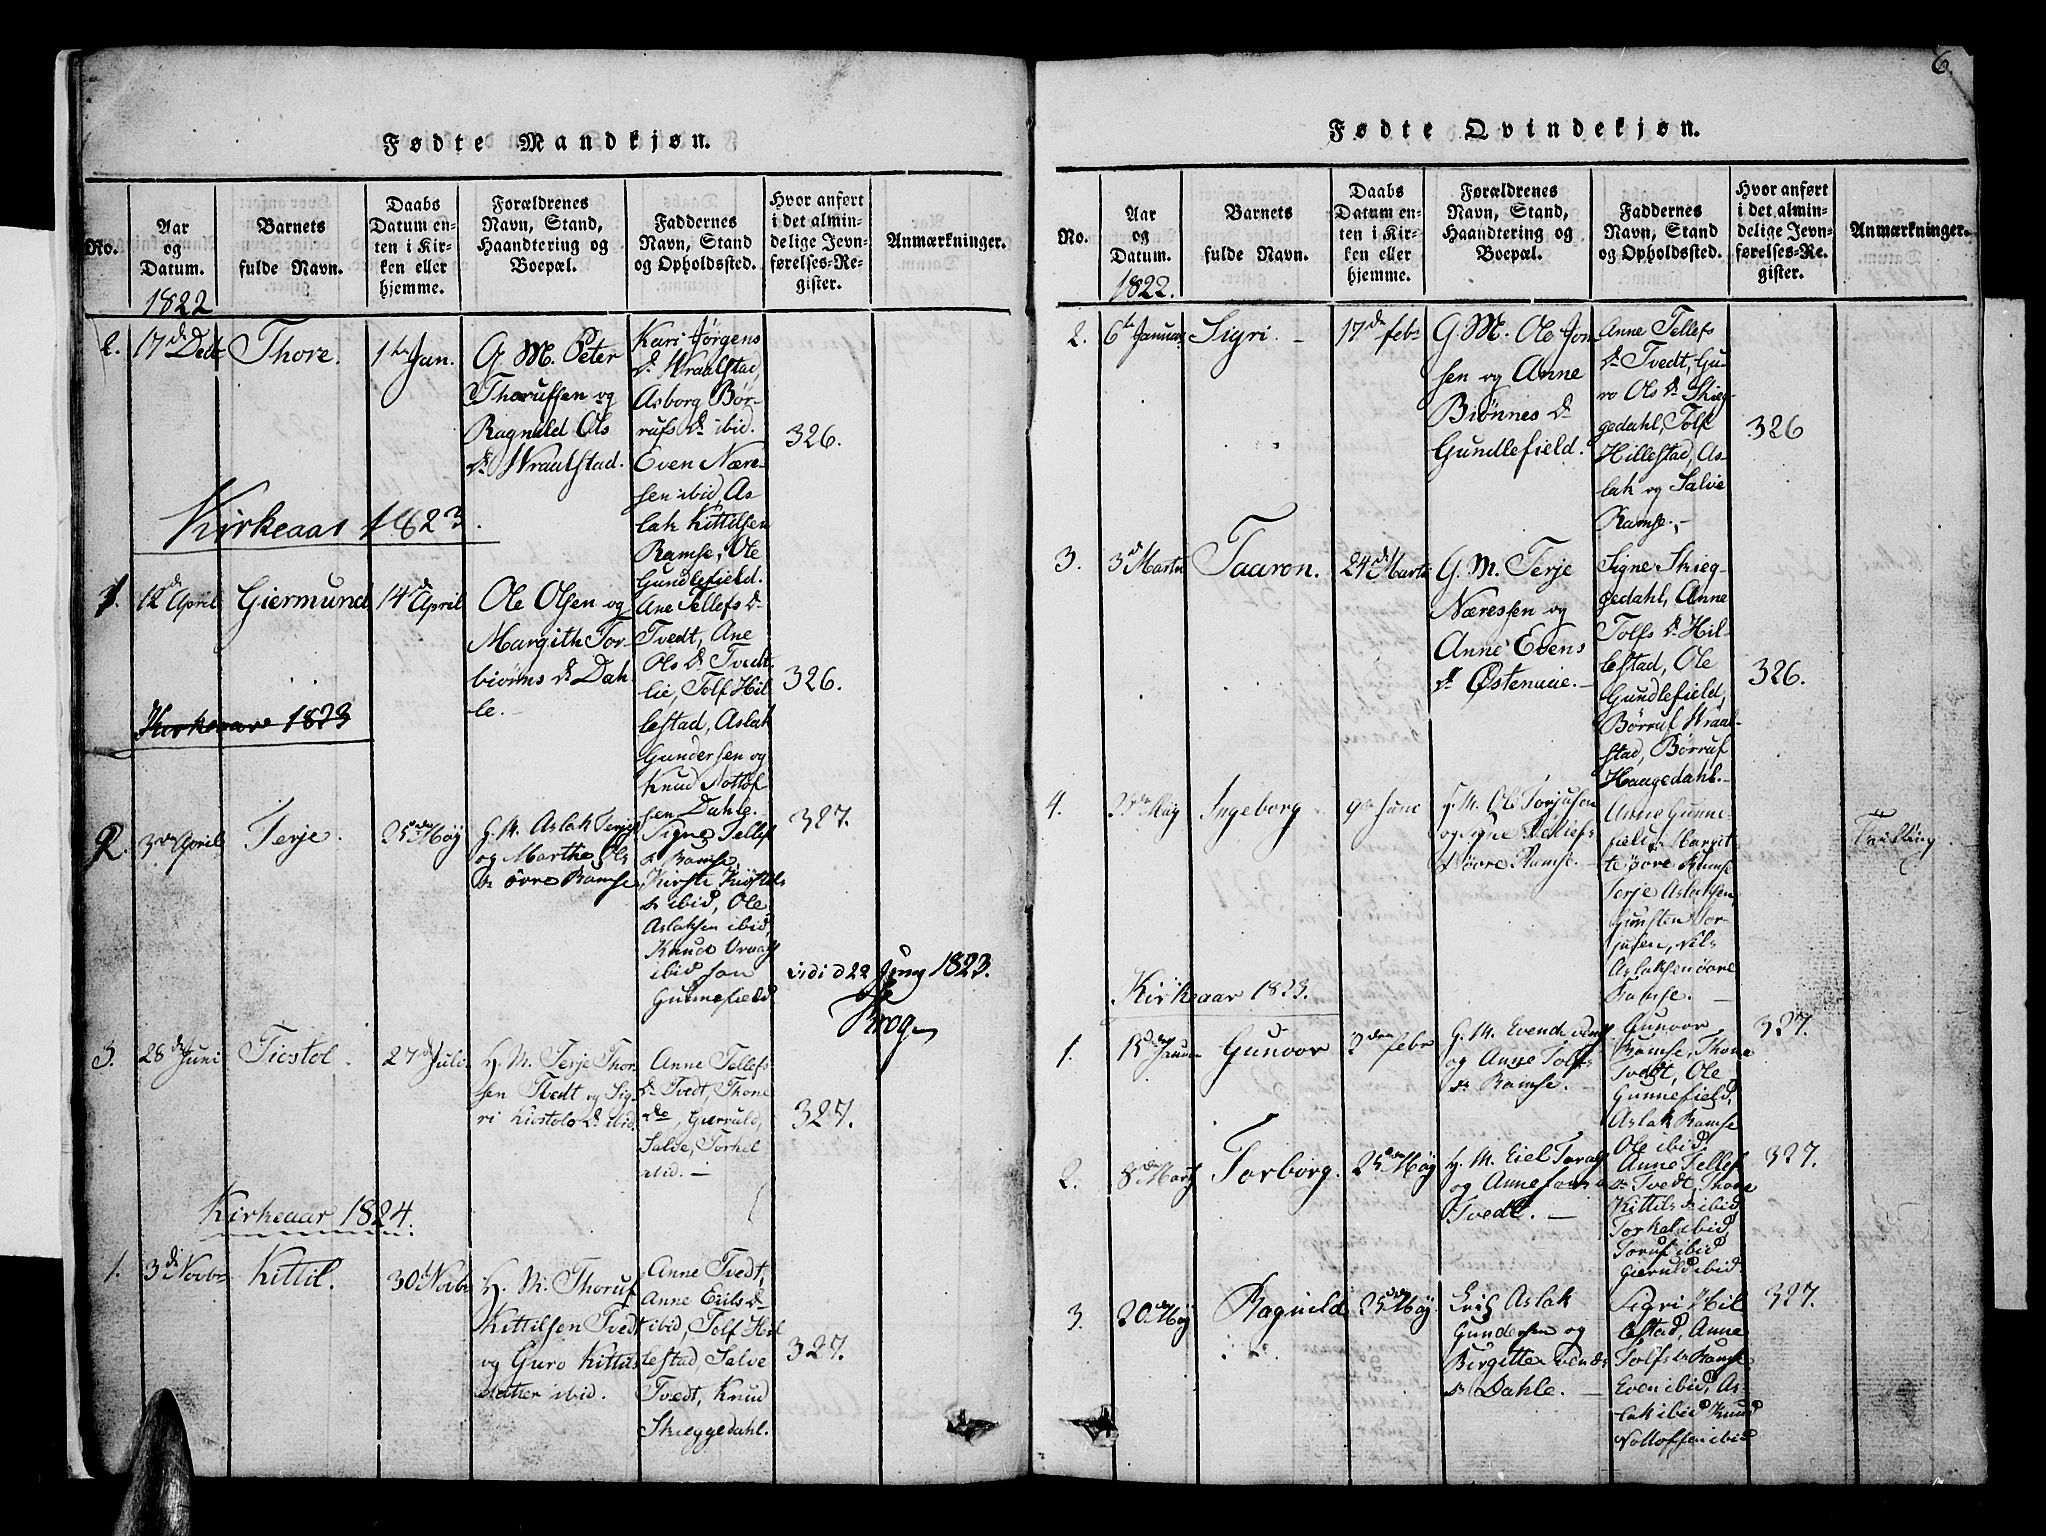 6.
Fødte Mandkjøn.
No.
Aar
og
Datum.
1822
Barnets
fulde Navn.
Daabs
Datum en-
ten i Kir-
ken eller
hjemme.
Forældrenes
Navn, Stand,
Haandtering og
Boepæl.
Faddernes
Navn, Stand
og Opholdssted.
Hvor anført
i det almin-
delige Jevn-
førelses-Re-
gister.
Anmærkninger.
2.
17d Dec
Thore.
1ste Jan.
G. M. Peter
Thorufsen og
Ragnild Ols
Dr. Wraalstad.
Kari Jørgens
Dr. Wraalstad,
Asborg Bør-
rufs Dr. ibid.
Even Nære-
sen ibid, As-
lak Kittilsen
Ramse, Ole
Gundlefield.
326.
Kirkeaar 1823.
1.
12d April
Giermund
14d April
Ole Olsen og
Margith Tor-
biørns Dr. Dah-
le.
Ane Tellefs Dr.
Tvedt, Ane
Ols Dr. Tvedt-
lie, Tolf Hil-
lestad, Aslak
Gundersen og
Knud Nottof
sen Dahle.
326.
Kirkeaar 1823
2.
3de April
Terje.
25de May
G. M. Aslak Terjes
og Marthe Ols
Dr. øvre Ramse
Signe Tellefs
Dr. Ramse,
Kirste Kiøstels
Dr. ibid, Ole
Aslaksen ibid,
Knud Vraal
ibid
Gunnefield
327.
vidi d 22 Juny 1823.
Krog
3.
28de Juni
Tiostol.
27de Juli
G. M. Terje Thor-
sen Tvedt og Sig-
ri Kiostols Dr. ibid.
Anne Tellefs
Dr. Tvedt, Thone
do, Gierruld,
Salve, Torkel
ibid.
327.
Kirkeaar 1824.
1.
3de Novbr
Kittil.
30d Novbr
G. M. Thoruf
Kittilsen Tvedt
og Guro Kittils
datter ibid.
Anne Tvedt,
Anne Erils Dr.
ibid, Tolf Hil-
lestad, Salve
Tvedt, Knud
Skieggedahl.
327.
Fødte Qvindekjøn.
No.
Aar
og
Datum.
1822.
Barnets
fulde Navn.
Daabs
Datum en-
ten i Kir-
ken eller
hjemme.
Forældrenes
Navn, Stand,
Haandtering og
Boepæl.
Faddernes
Navn, Stand
og Opholdssted.
Hvor anført
i det almin-
delige Jevn-
førelses-Re-
gister.
Anmærkninger.
2.
6te Januar
Sigri.
17de febr
G. M. Ole Jon
sen og Anne
Biønnes Dr.
Gundlefield.
Anne Tellefs
Dr. Tvedt, Gu-
ro Ols Dr. Skieg-
gedahl, Tolf
Hillestad, As-
lak og Salve
Ramse.
326
3.
3d Marts
Taaron.
24de Marts
G. M. Terje
Næressen og
Anne Evens
Dr. Østenueie.
Signe Skieg-
gedahl, Anne
Tolfs Dr. Hil-
lestad, Ole
Gundlefield,
Børruf Wraal-
stad, Børruf
Haugedahl.
326.
4.
May
Ingeborg
9de Juni
G. M. Ol Torjusen
og Signe Tellefs
Dr. øvre Ramse.
Anne Gunne-
field, Margit
øvre Ramse
Terje Aslaksen
Gunsten Tor-
jusen, Nils
Aslaksen øvre
Ramse.
Tvilling.
Kirkeaar 1823.
1.
15de Januar
Gunvor
2den febr
G. M.
og Anne Tolfs
Dr. Ramse.
Gunvor
Ramse, Thone
Tvedt, Ole
Gunnefield,
Aslak Ramse
Ole ibid.
327.
2.
8de Marts
Torborg.
25de May
G. M. Eiel Toralf
og Anne
Tvedt.
Anne Tellef
Dr. Tvedt, Thone
Kittils Dr. ibid,
Torkel ibid,
Toruf ibid
Gieruld ibid.
327.
3.
20de May
Ragnild
25de May
Aslak
Gundersen og
Birgitte
Dr. Dahle.
Sigri Hil
lestad, Anne
Tolfs Dr. Ramse
Even ibid, As-
lak ibid Knud
Nottofsen ibid
327.